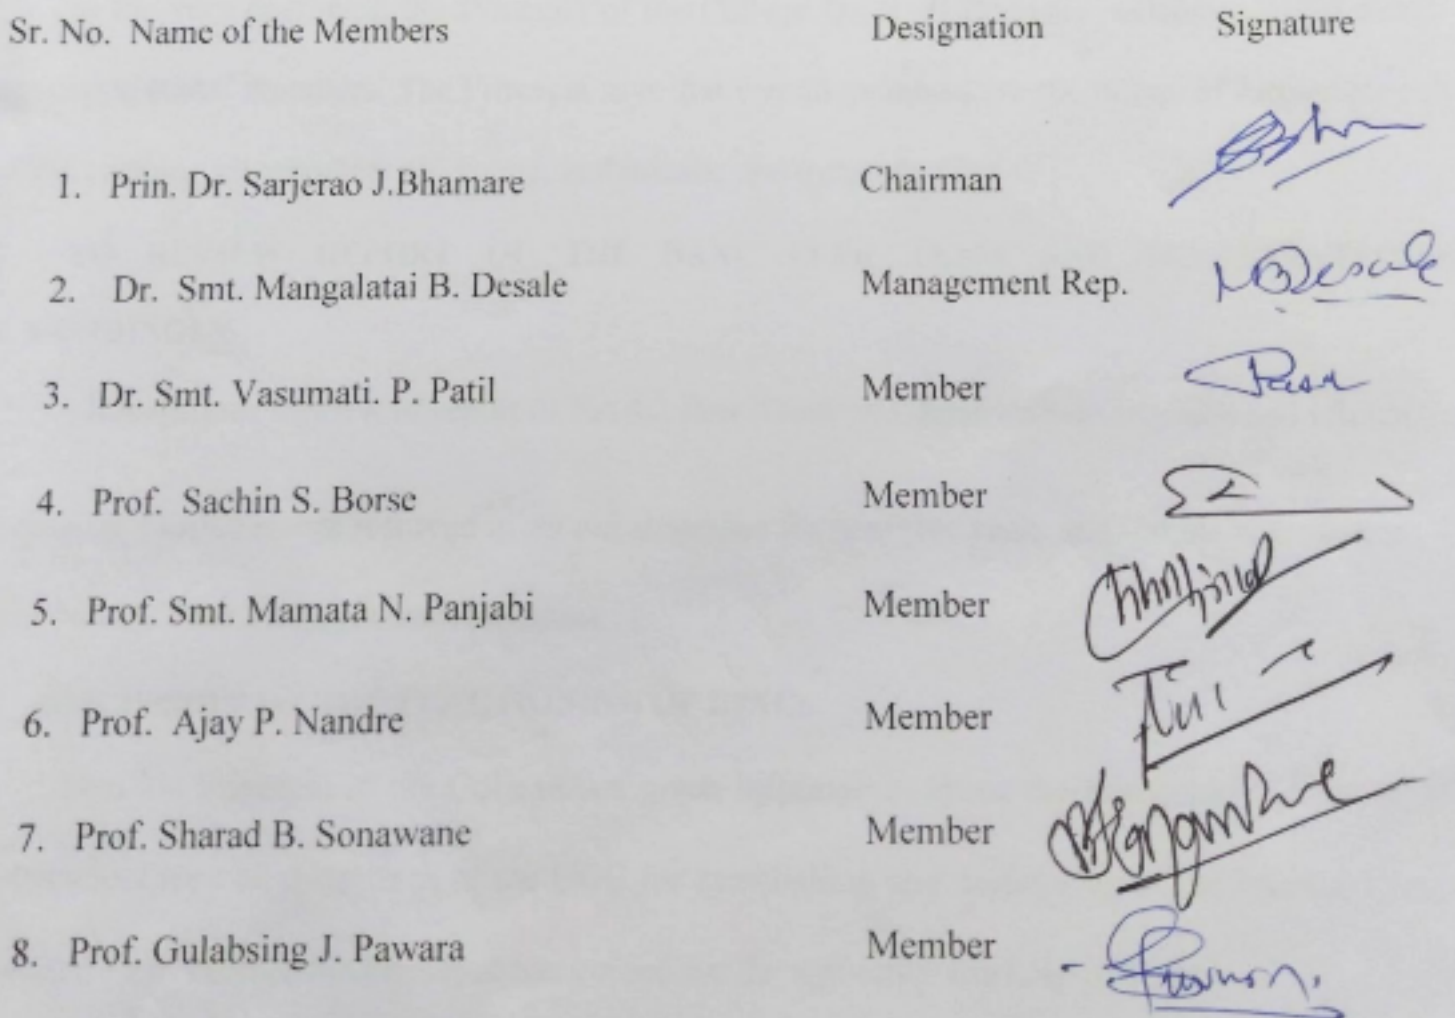 Sr. No. Name of the Members Designation Signature
1. Prin. Dr. Sarjerao J.Bhamare Chairman
2. Dr. Smt. Mangalatai B. Desale Management Rep. MBDesale
3. Dr. Smt. Vasumati. P. Patil Member
4. Prof. Sachin S. Borse Member
5. Prof. Smt. Mamata N. Panjabi Member
6. Prof. Ajay P. Nandre Member
7. Prof. Sharad B. Sonawane Member
8. Prof. Gulabsing J. Pawara Member